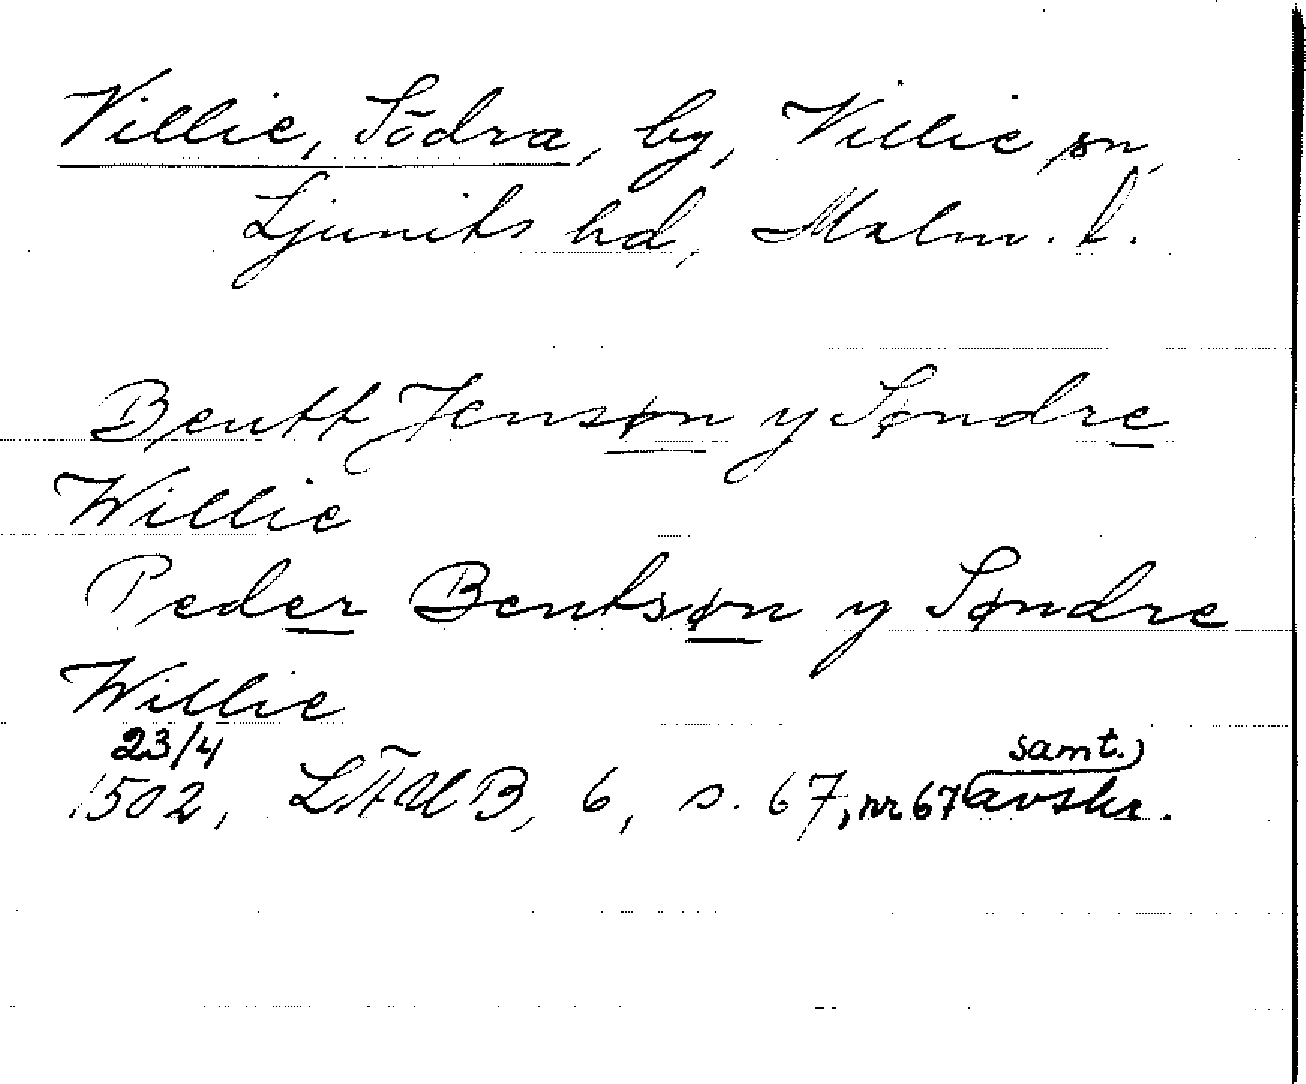 Villie, Södra, by, Villie sn,
Ljunits hd, Malm. l.
Bentt Jensøn y Søndre
Willie
Peder Bentsøn y Søndre
Willie
23/4 samt.)
1502, LÄUB, 6, s. 67, nr 67 (avskr.